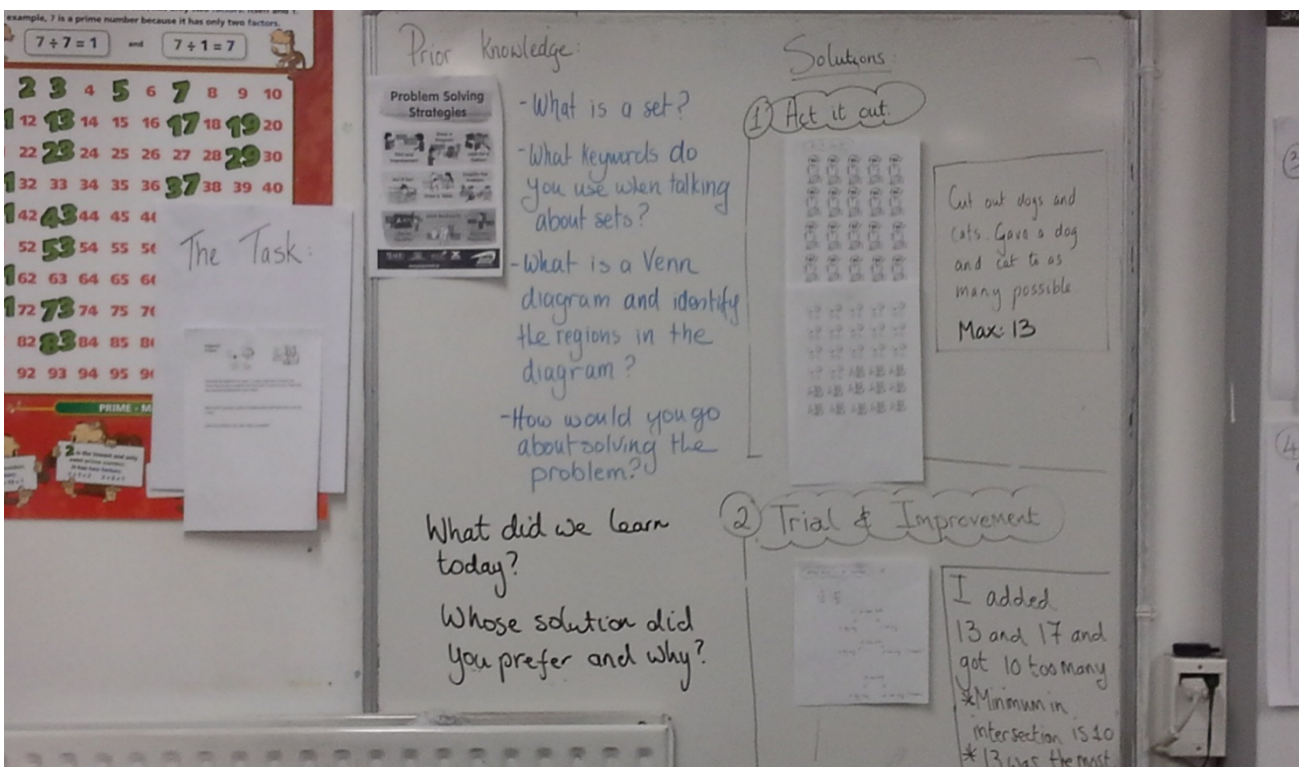 example, 7 is a prime number because it has only two factors.
7 ÷ 7 = 1 and 7 ÷ 1 = 7
2 3 4 5 6 7 8 9 10
12 13 14 15 16 17 18 19 20
22 23 24 25 26 27 28 29 30
32 33 34 35 36 37 38 39 40
42 43 44 45
52 53 54 55
62 63 64 65
72 73 74 75
82 83 84 85
92 93 94 95
PRIME - M
The Task:
Prior Knowledge:
Problem Solving
Strategies
- What is a set?
- What keywords do
you use when talking
about sets?
- What is a Venn
diagram and identify
the regions in the
diagram?
- How would you go
about solving the
problem?
What did we learn
today?
Whose solution did
you prefer and why?
Solutions:
1 Act it out.
Cut out dogs and
cats. Gave a dog
and cat to as
many possible
Max: 13
2 Trial & Improvement
I added
13 and 17 and
got 10 too many
*Minimum in
intersection is 10
* 13 was the most
4